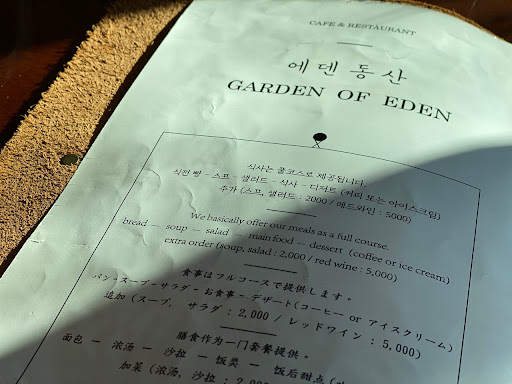 CAFE & RESTAURANT
에덴동산
GARDEN OF EDEN
식사는 풀코스로 제공됩니다.
식전 빵 - 스프 - 샐러드 - 식사 - 디저트 (커피 또는 아이스크림)
추가 (스프, 샐러드 : 2000 / 레드와인 : 5000)
We basically offer our meals as a full course.
bread — soup — salad — main food — dessert (coffee or ice cream)
extra order (soup, salad : 2,000 / red wine : 5,000)
食事はフルコースで提供します。
パン - スープ - サラダ - お食事 - デザート(コーヒー or アイスクリーム)
追加 (スープ, サラダ : 2,000 / レッドワイン : 5,000)
膳食作为一门套餐提供。
面包 — 浓汤 — 沙拉 — 饭类 — 饭后甜点
加菜 (浓汤, 沙拉 :